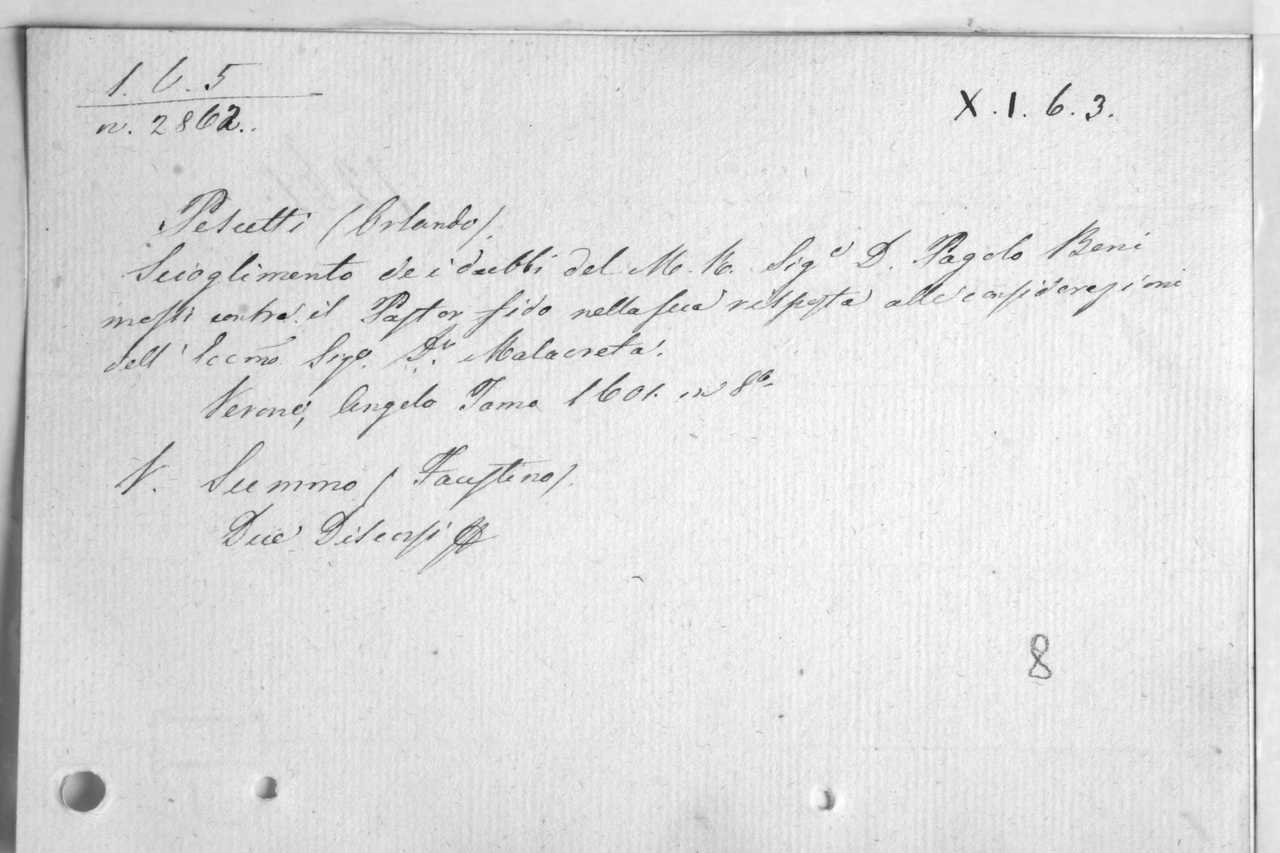 1. 6. 5
n. 2862.
X. 1. 6. 3.
Pescetti (Orlando).
Scioglimento de i dubbi del M. R. Sig.e D. Pagolo Beni
mossi contra il Pastor fido nella sua risposta alle considerazioni
dell' Eccmo Sigr. Dr. Malacreta.
Verona, Angelo Tamo 1601. in 8o.
V. Summo (Faustino).
Due Discorsi
8